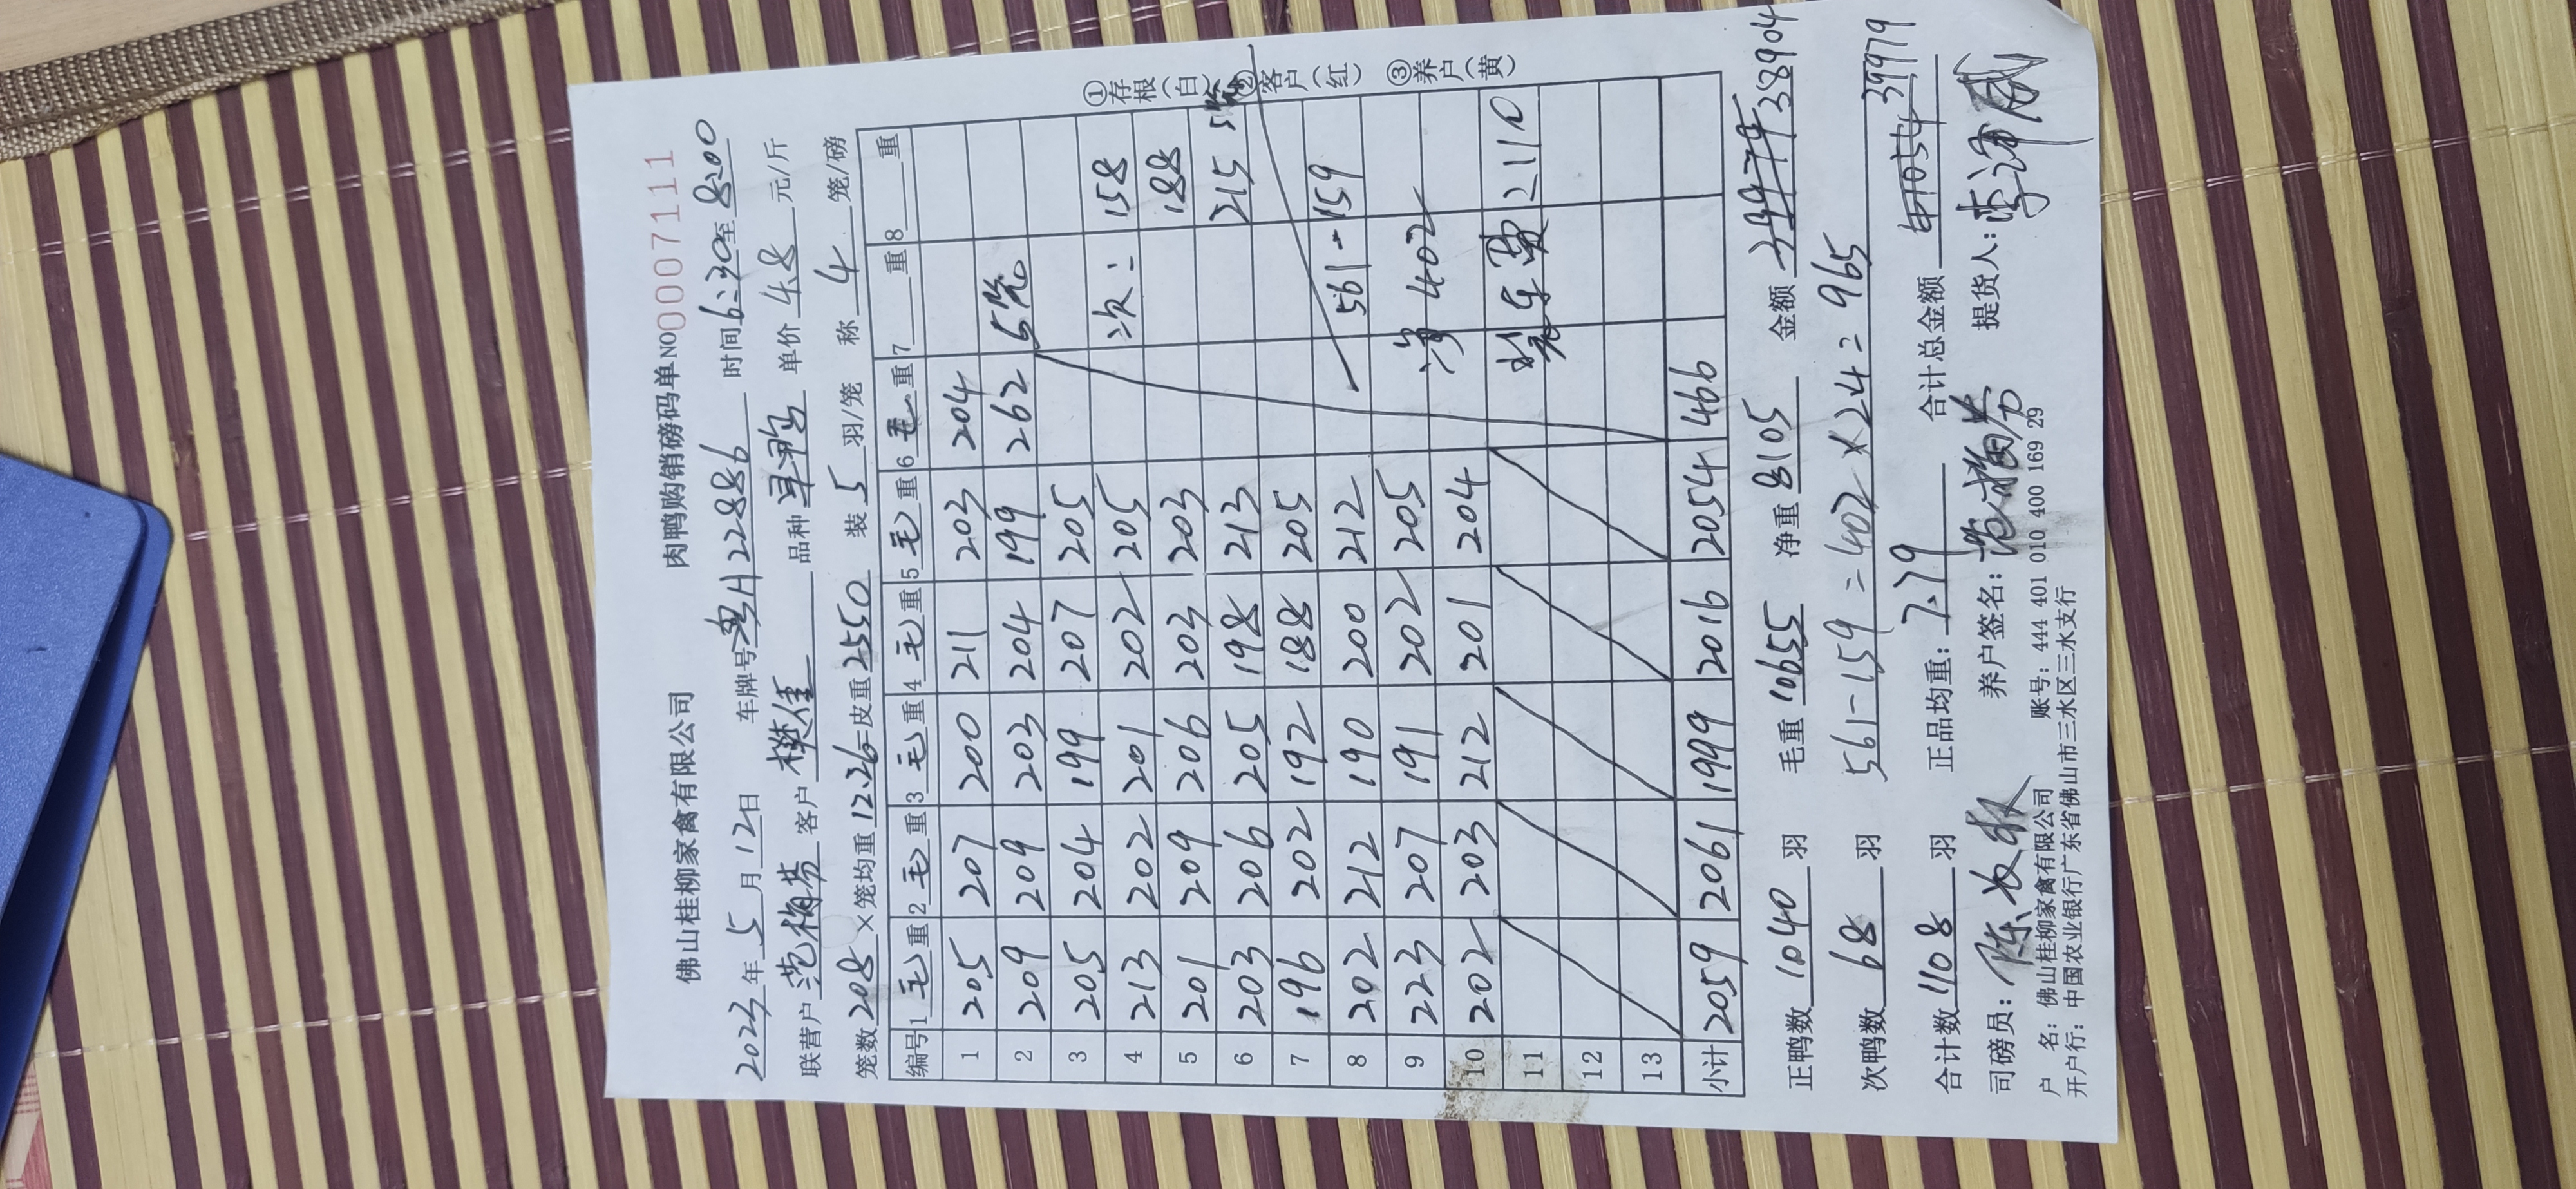 佛山桂柳家禽有限公司 肉鸭购销磅码单 NO 0007111
2023年5月12日 车牌号粤H22886 时间6:30至8:00
联营户范梅芬 客户樊佳 品种 单价4.8元/斤
笼数208×笼均重12.26=皮重2550 装5羽/笼 称4笼/磅
编号 1毛重 2毛重 3毛重 4毛重 5毛重 6毛重 7重 8重
1 205 207 200 211 203 204
2 209 209 203 204 199 262 5笼
3 205 204 199 207 205
4 213 202 201 202 205 次: 158
5 201 209 206 203 203 188
6 203 206 205 198 213 215 5笼
7 196 202 192 188 205
8 202 212 190 200 212 561-159
9 223 207 191 202 205 净402
10 202 203 212 201 204
11 装车费 2110
12
13
小计 2059 2061 1999 2016 2054 466
①存根(白)
②客户(红)
③养户(黄)
正鸭数1040羽 毛重10655 净重8105 金额 38904
次鸭数68羽 561-159=402×2.4=965
合计数1108羽 正品均重:7.79 合计总金额 39979
司磅员: 养户签名:范梅芬 提货人:
户 名:佛山桂柳家禽有限公司 账号:444 401 010 400 169 29
开户行:中国农业银行广东省佛山市三水区三水支行